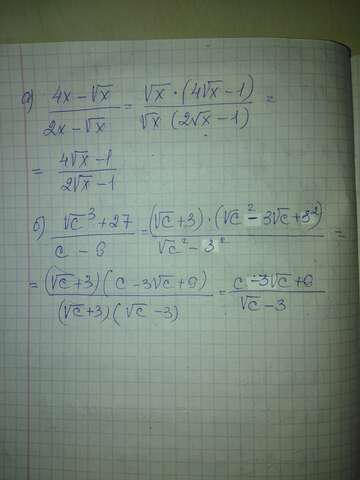 а) (4x − √x)/(2x − √x) = (√x · (4√x − 1))/(√x (2√x − 1)) =
= (4√x − 1)/(2√x − 1)
б) (√c³ + 27)/(c − 9) = ((√c + 3) · (√c² − 3√c + 3²))/(√c² − 3²) =
= ((√c + 3)(c − 3√c + 9))/((√c + 3)(√c − 3)) = (c − 3√c + 9)/(√c − 3)